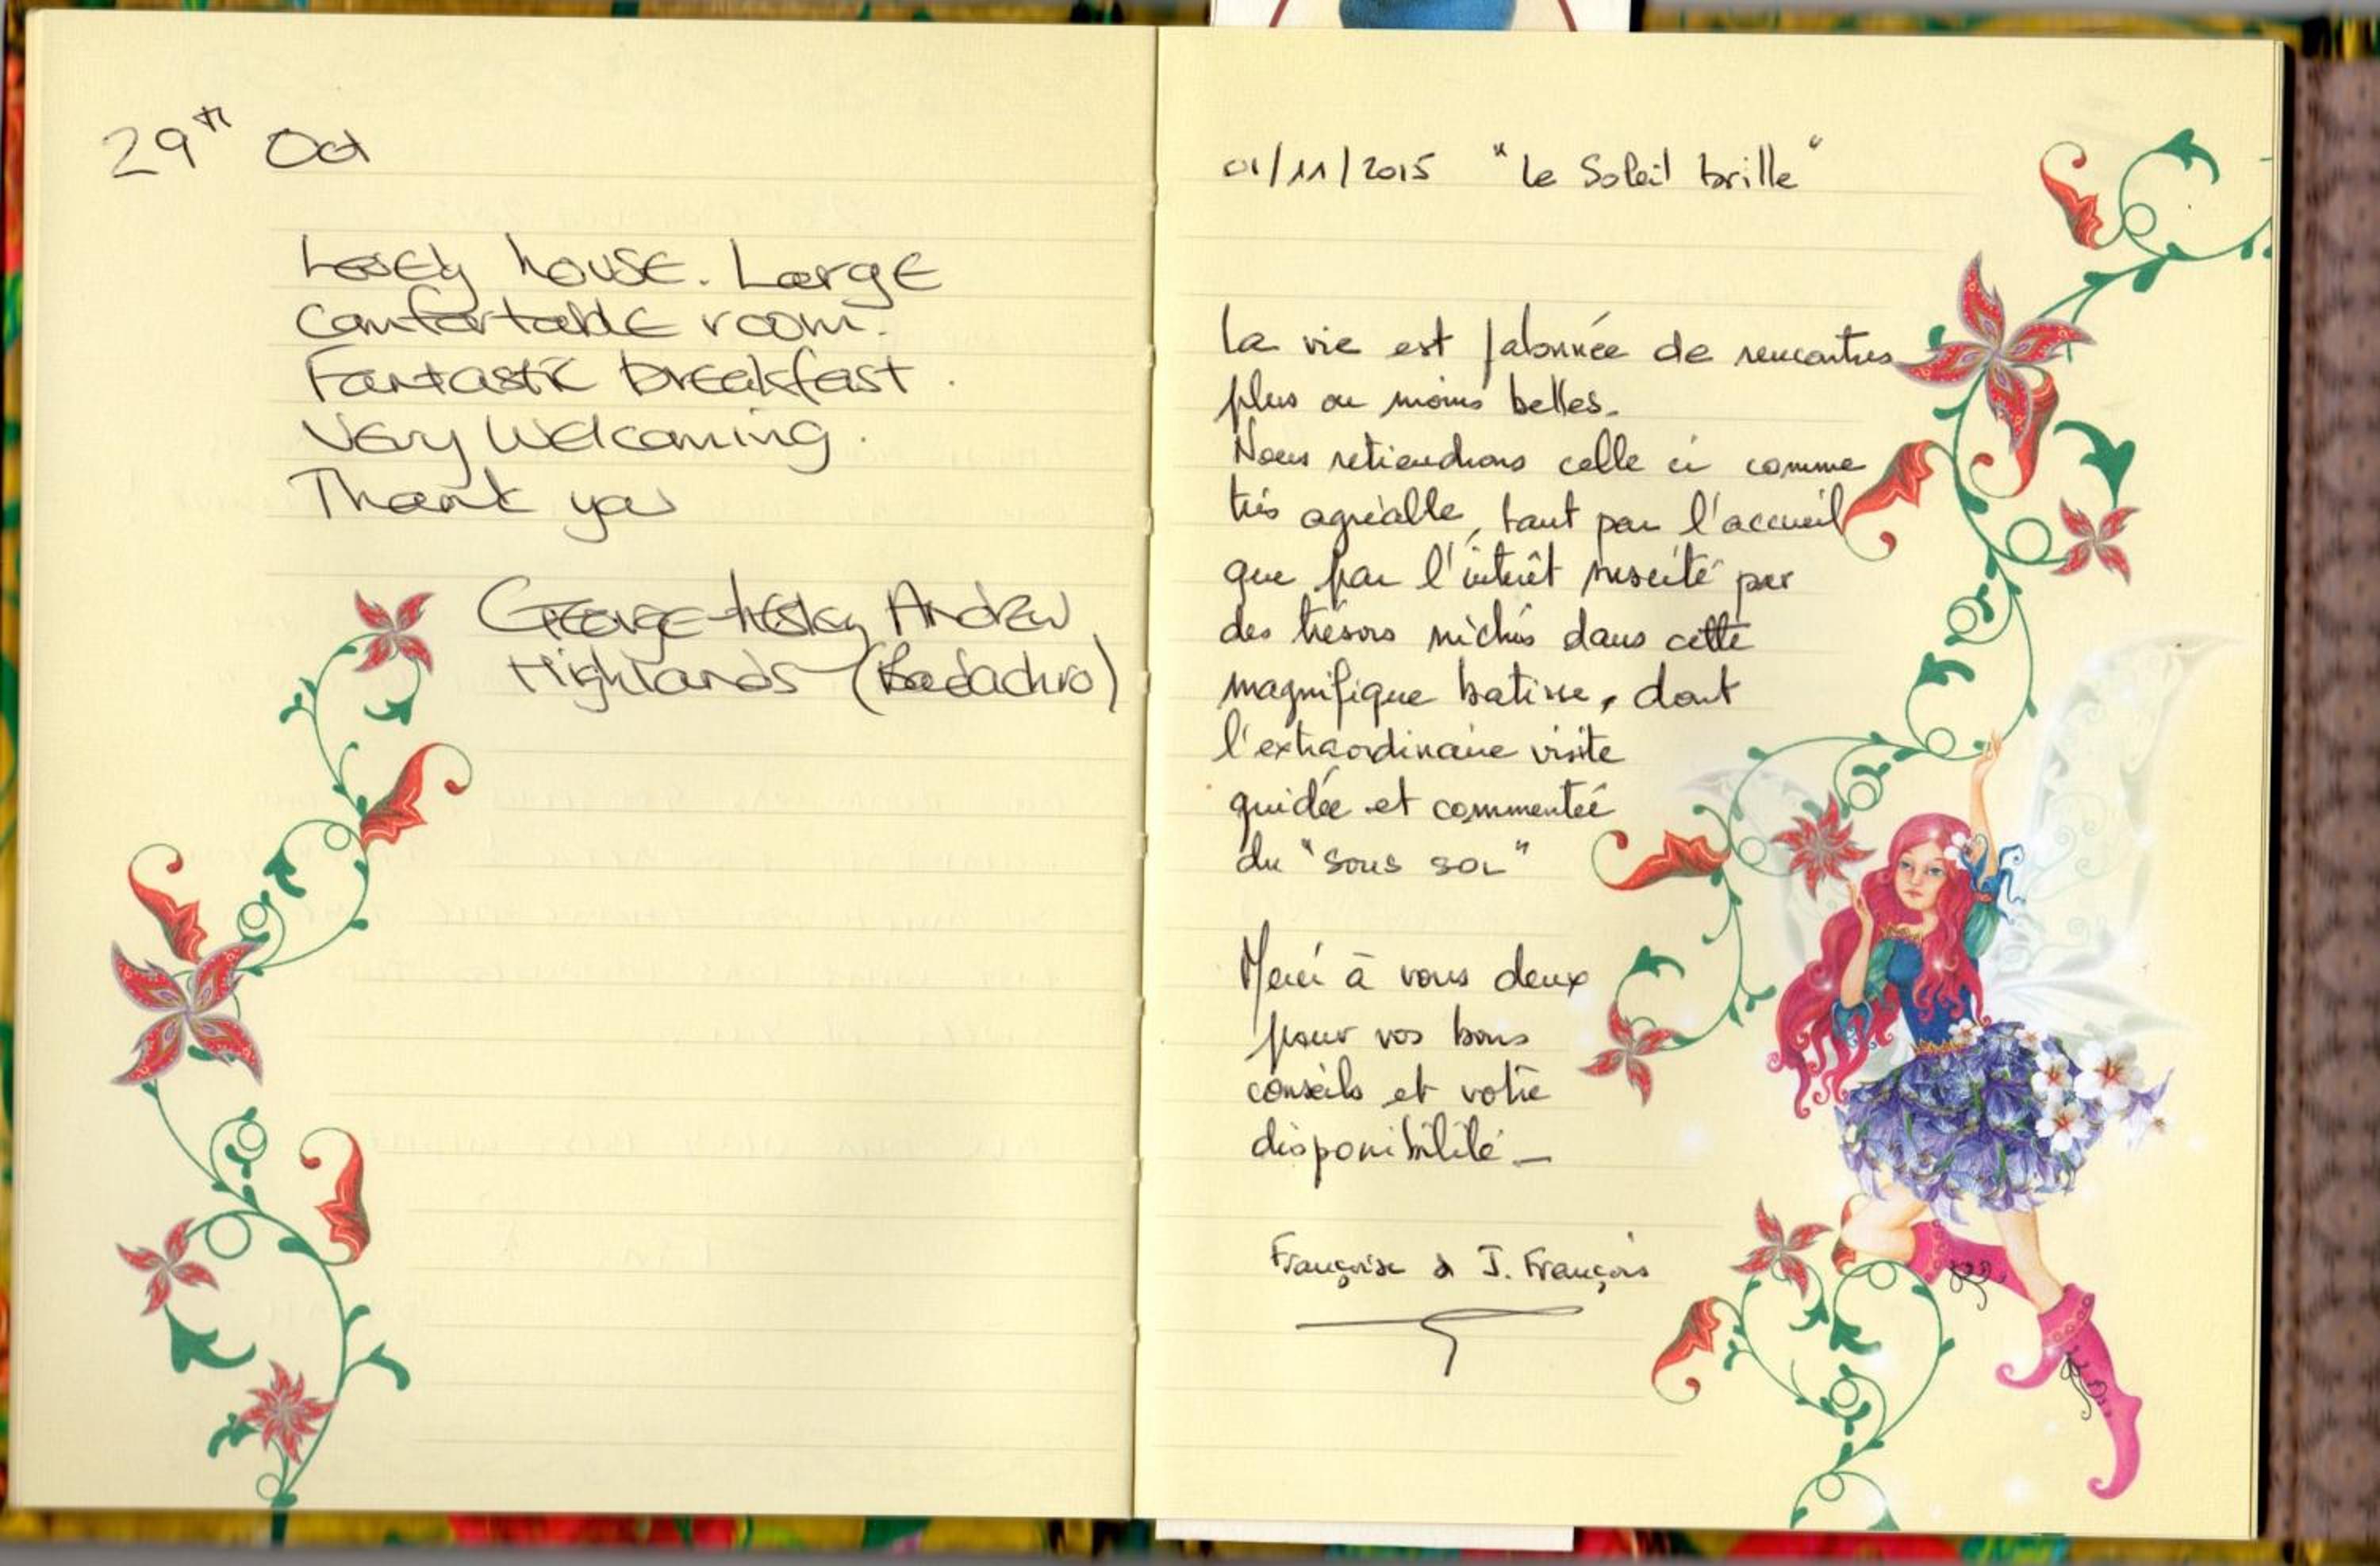 29th Oct
Lovely house. Large
comfortable room.
Fantastic breakfast.
Very Welcoming.
Thank you
George Lesley Andrew
Highlands (Badachro)
01/11/2015 "Le Soleil brille"
La vie est jalonnée de rencontres
plus ou moins belles.
Nous retiendrons celle ci comme
très agréable, tant par l'accueil
que par l'intérêt suscité par
des trésors nichés dans cette
magnifique batisse, dont
l'extraordinaire visite
guidée et commentée
du "sous sol"
Merci à vous deux
pour vos bons
conseils et votre
disponibilité_
Françoise & J. François